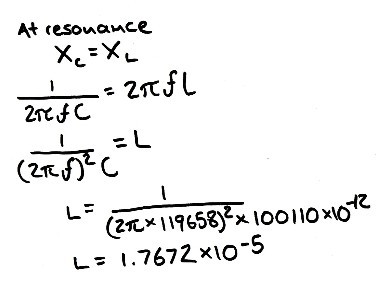 At resonance
X_C = X_L
1/(2πfC) = 2πfL
1/((2πf)²C) = L
L = 1/((2π×119658)²×100110×10⁻¹²)
L = 1.7672×10⁻⁵